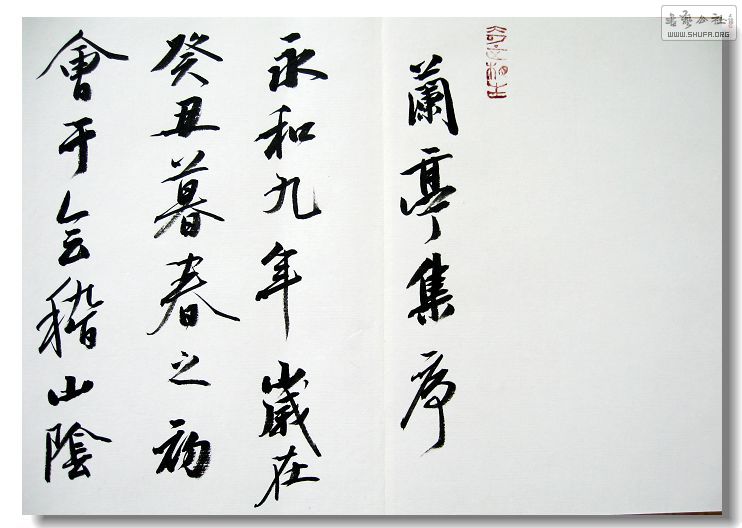 蘭亭集序
永和九年歲在
癸丑暮春之初
會于会稽山陰
书艺公社
WWW.SHUFA.ORG